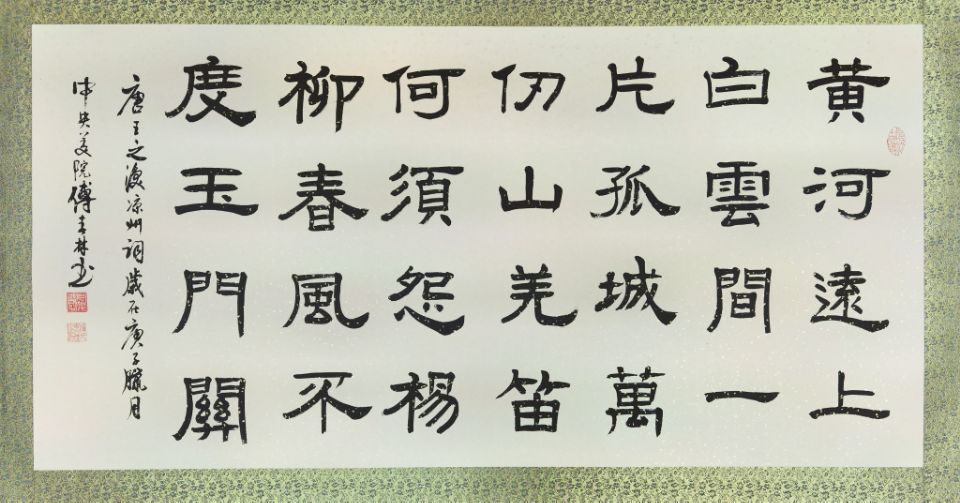 黃河遠上
白雲間一
片孤城萬
仞山羌笛
何須怨楊
柳春風不
度玉門關
唐王之渙涼州詞歲在庚子臘月
中央美院傅玉林书